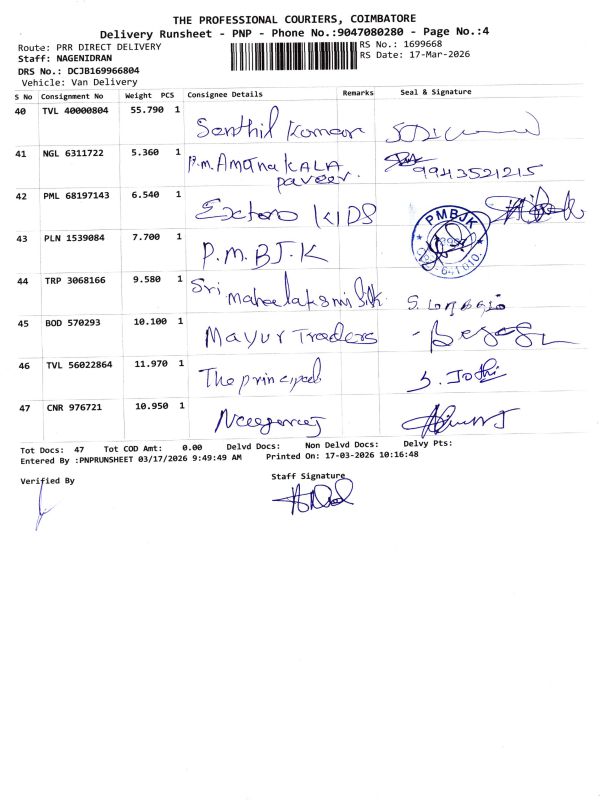 THE PROFESSIONAL COURIERS, COIMBATORE
Delivery Runsheet - PNP - Phone No.:9047080280 - Page No.:4
Route: PRR DIRECT DELIVERY
RS No.: 1699668
Staff: NAGENIDRAN
RS Date: 17-Mar-2026
DRS No.: DCJB169966804
Vehicle: Van Delivery
S No Consignment No Weight PCS Consignee Details Remarks Seal & Signature
40 TVL 40000804 55.790 1 Senthil Kumar
41 NGL 6311722 5.360 1 P.m. Amutna KALA 9943521215
paveer.
42 PML 68197143 6.540 1 KIDS
43 PLN 1539084 7.700 1 P.M.BJ.K PMBJK
44 TRP 3068166 9.580 1 Sri mahaalakshmi S.
45 BOD 570293 10.100 1 Mayur Traders
46 TVL 56022864 11.970 1 The principal S. Jothi
47 CNR 976721 10.950 1
Tot Docs: 47 Tot COD Amt: 0.00 Delvd Docs: Non Delvd Docs: Delvy Pts:
Entered By :PNPRUNSHEET 03/17/2026 9:49:49 AM Printed On: 17-03-2026 10:16:48
Verified By
Staff Signature